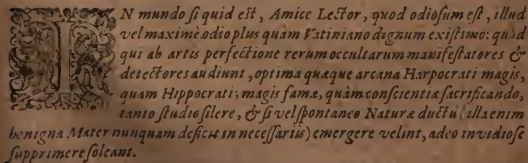 IN mundo si quid est, Amice Lector, quod odiosum est, illud
vel maximè odio plus quàm Vatiniano dignum existimo: quòd
qui ab artis perfectione rerum occultarum manifestatores &
detectores audiunt, optima quæque arcana Harpocrati magis,
quam Hippocrati; magis famæ, quàm conscientiæ sacrificando,
tanto studio silere, & si vel spontaneo Naturæ ductu (illa enim
benigna Mater nunquam deficit in necessariis) emergere velint, adeo invidiose
supprimere soleant.